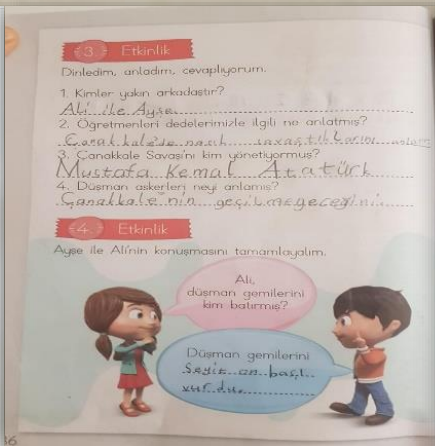 3. Etkinlik
Dinledim, anladım, cevaplıyorum.
1. Kimler yakın arkadaştır?
Ali ile Ayşe.
2. Öğretmenleri dedelerimizle ilgili ne anlatmış?
Çanakkale'de nasıl savaştıklarını
3. Çanakkale Savaşını kim yönetiyormuş?
Mustafa Kemal Atatürk
4. Düşman askerleri neyi anlamış?
Çanakkale'nin geçilmeyeceğini.
4. Etkinlik
Ayşe ile Ali'nin konuşmasını tamamlayalım.
Ali,
düşman gemilerini
kim batırmış?
Düşman gemilerini
Seyit on başı
vurdu.